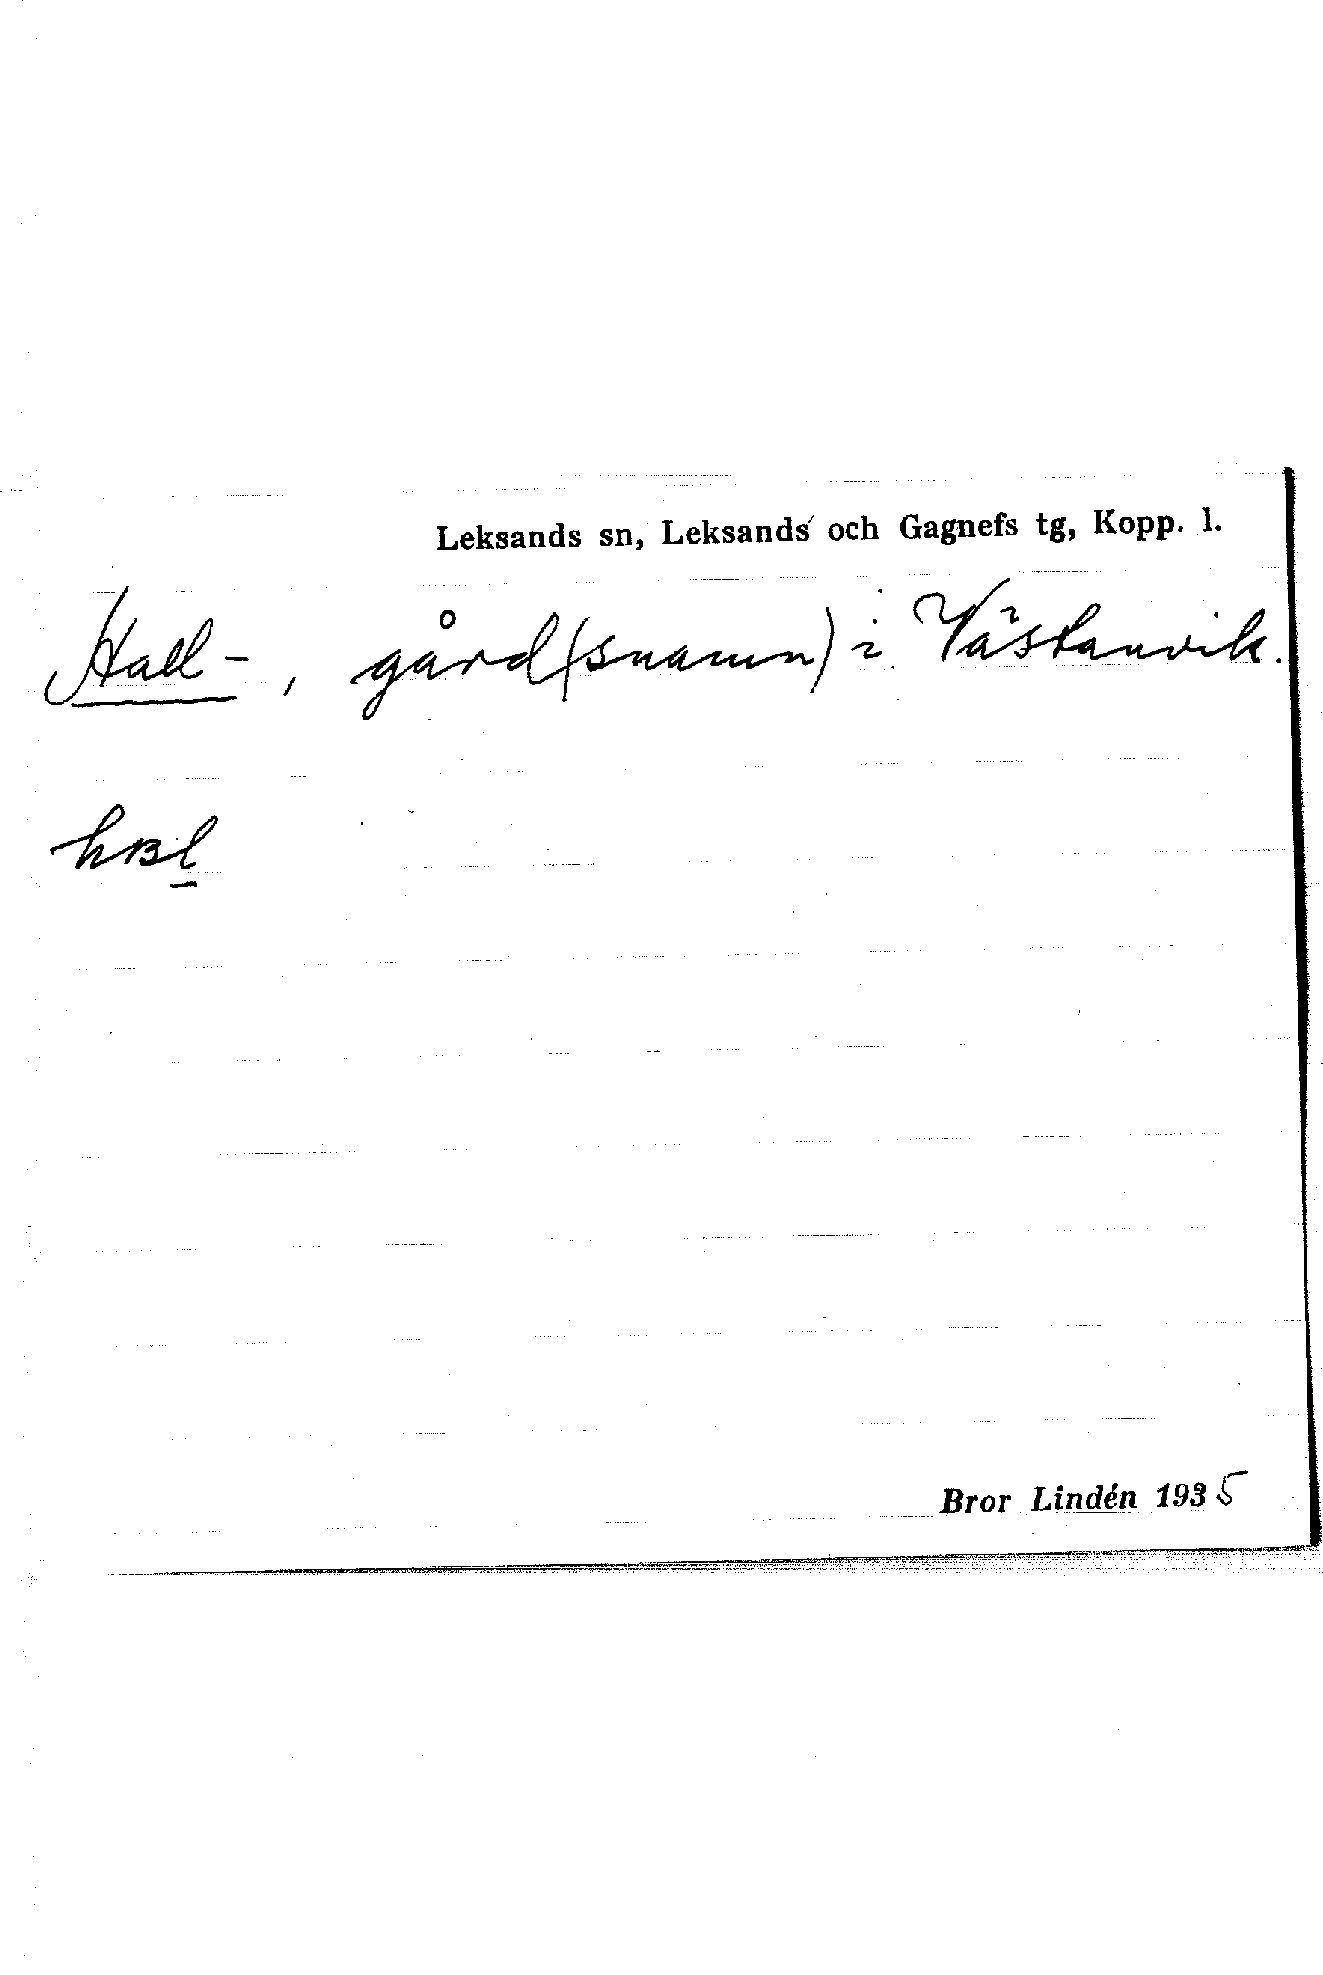 Leksands sn, Leksands och Gagnefs tg, Kopp. l.
Hall-, gård(snamn) i Västanvik.
Bror Lindén 1935